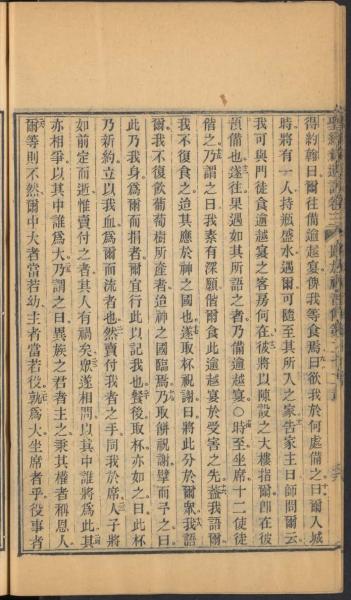 得約翰曰爾往備逾越宴俾我等食焉曰欲我於何處備之曰爾入城
時將有一人持瓶盛水遇爾可隨至其所入之家告家主曰師問爾云
我可與門徒食逾越宴之客房何在彼將以陳設之大樓指爾卽在彼
預備也遂往果遇如其所語之者乃備逾越宴○時至坐席十二使徒
偕之乃謂之曰我素有深願偕爾食此逾越宴於受害之先蓋我語爾
我不復食之迨其應於神之國也遂取杯祝謝曰將此分於爾衆我語
爾我不復飲葡萄樹所產者迨神之國臨焉乃取餅祝謝擘而予之曰
此乃我身爲爾而捐者爾宜行此以記我也餐後取杯亦如之曰此杯
乃新約立以我血爲爾而流者也然賣付我者之手同我於席人子將
如前定而逝惟賣付之者其人有禍矣衆遂相問以其中誰將爲此其
亦相爭以其中誰爲大乃謂之曰異族之君者主之秉其權者稱恩人
爾等則不然爾中大者當若幼主者當若役孰爲大坐席者乎役事者